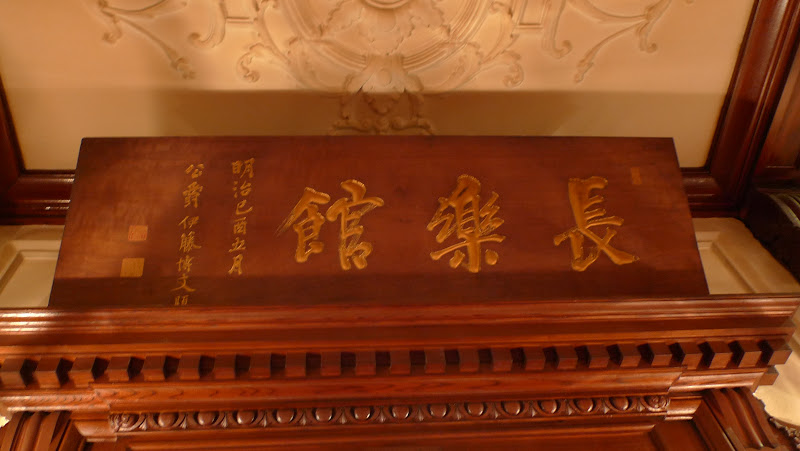 長樂館
明治己酉五月
公爵伊藤博文題